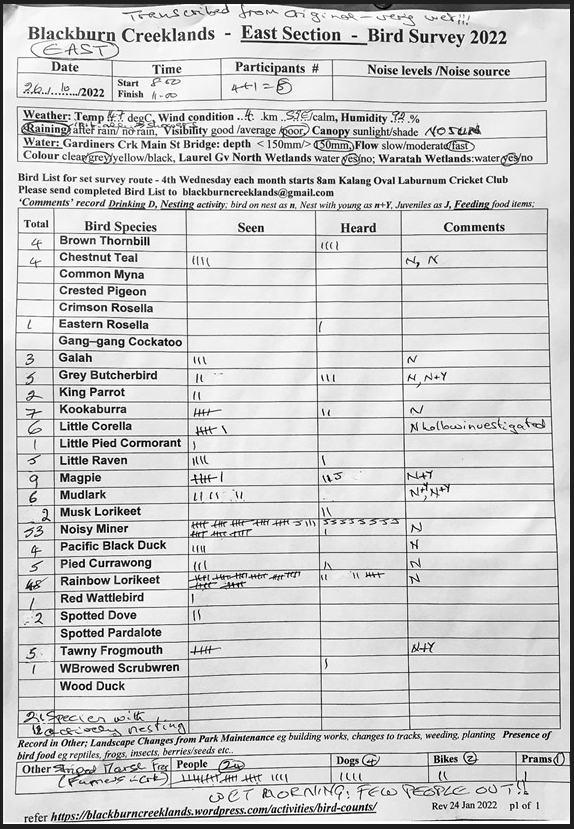 Transcribed from original - very wet!!!
Blackburn Creeklands - East Section - Bird Survey 2022
(EAST)
Date Time Participants # Noise levels /Noise source
26/10/2022 Start 8-00 4+1=5
Finish 11-00
Weather: Temp degC, Wind condition .km SSE/calm, Humidity 92.%
Raining/after rain/ no rain, Visibility good /average /poor, Canopy sunlight/shade NO SUN
Water: Gardiners Crk Main St Bridge: depth < 150mm/>150mm, Flow slow/moderate/fast
Colour clear/grey/yellow/black, Laurel Gv North Wetlands water yes/no; Waratah Wetlands:water yes/no
Bird List for set survey route - 4th Wednesday each month starts 8am Kalang Oval Laburnum Cricket Club
Please send completed Bird List to blackburncreeklands@gmail.com
'Comments' record Drinking D, Nesting activity; bird on nest as n, Nest with young as n+Y, Juveniles as J, Feeding food items;
Total Bird Species Seen Heard Comments
4 Brown Thornbill IIII
4 Chestnut Teal IIII N, N
Common Myna
Crested Pigeon
Crimson Rosella
1 Eastern Rosella I
Gang-gang Cockatoo
3 Galah III N
5 Grey Butcherbird II III N, N+Y
2 King Parrot II
7 Kookaburra IIII II N
6 Little Corella IIII I N hollow investigated
1 Little Pied Cormorant I
5 Little Raven IIII I
9 Magpie IIII I N+Y
6 Mudlark II II II N+Y, N+Y
2 Musk Lorikeet II
53 Noisy Miner N
4 Pacific Black Duck IIII N
5 Pied Currawong III N
48 Rainbow Lorikeet N
1 Red Wattlebird I
2 Spotted Dove II
Spotted Pardalote
5 Tawny Frogmouth IIII N+Y
1 WBrowed Scrubwren I
Wood Duck
21 Species with
12 actively nesting
Record in Other; Landscape Changes from Park Maintenance eg building works, changes to tracks, weeding, planting Presence of
bird food eg reptiles, frogs, insects, berries/seeds etc..
Other Striped Marsh Frog People 24 Dogs 4 Bikes 2 Prams 1
IIII IIII IIII IIII IIII IIII II I
WET MORNING: FEW PEOPLE OUT!!
refer https://blackburncreeklands.wordpress.com/activities/bird-counts/ Rev 24 Jan 2022 p1 of 1